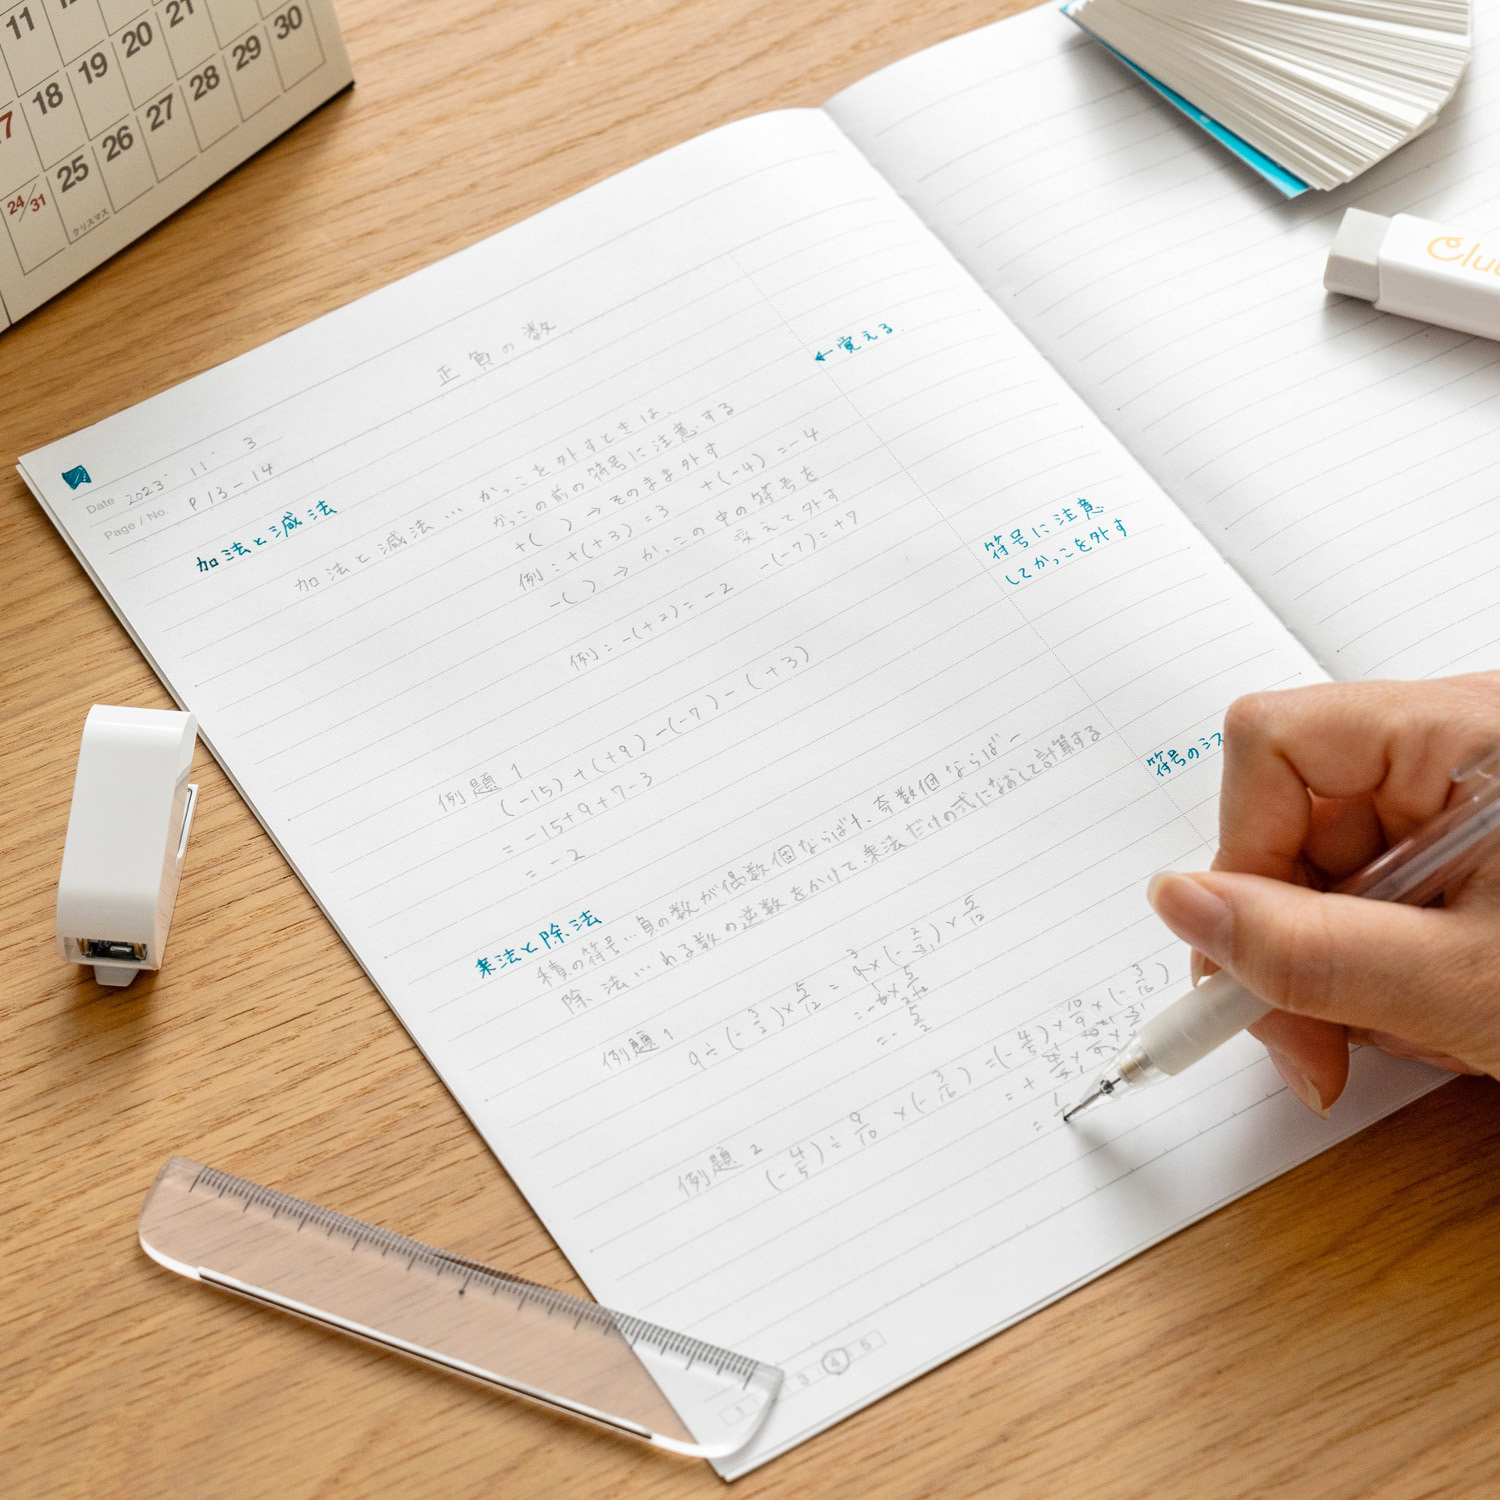 11
18 19 20 21
25 26 27 28 29 30
24/31
クリスマス
正負の数
Date 2023. 11. 3
Page / No. P 13-14
加法と減法
加法と減法… かっこを外すときは、
かっこの前の符号に注意する
+( ) → そのまま外す
例：+(+3)=3 +(-4)=-4
-( ) → かっこの中の符号を
変えて外す
例：-(+2)=-2 -(-7)=+7
←覚える
例題 1
(-15)+(+9)-(-7)-(+3)
=-15+9+7-3
=-2
符号に注意
してかっこを外す
乗法と除法
積の符号…負の数が偶数個ならば+、奇数個ならば-
除法…わる数の逆数をかけて、乗法だけの式になおして計算する
符号のミス
例題 1
9÷(-3/2)×5/12=9×(-2/3)×5/12
=-5/2
例題 2
(-4/5)÷9/10×(-3/16)=(-4/5)×10/9×(-3/16)
1 3 4 5